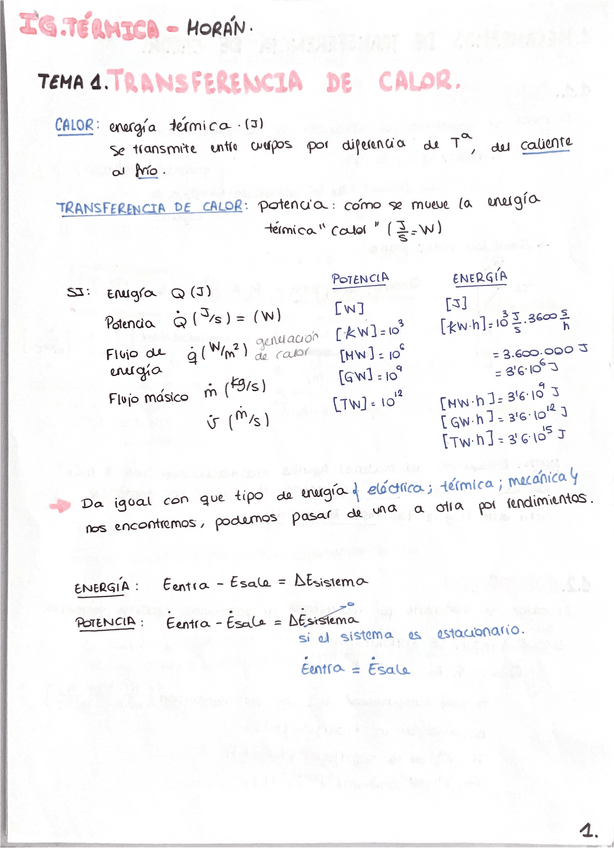 IG.TÉRMICA - MORÁN.
TEMA 1. TRANSFERENCIA DE CALOR.
CALOR: energía térmica. (J)
Se transmite entre cuerpos por diferencia de Tª, del caliente
al frío.
TRANSFERENCIA DE CALOR: potencia: cómo se mueve la energía
térmica "calor" (J/s = W)
POTENCIA ENERGÍA
SI: Energía Q (J) [W] [J]
Potencia Q̇ (J/s) = (W) [kW] = 10³ [kW·h] = 10³ J/s · 3600 s/h
Flujo de energía q̇ (W/m²) generación de calor [MW] = 10⁶ = 3.600.000 J
[GW] = 10⁹ = 3'6·10⁶ J
Flujo másico ṁ (kg/s) [TW] = 10¹² [MW·h] = 3'6·10⁹ J
[GW·h] = 3'6·10¹² J
[TW·h] = 3'6·10¹⁵ J
→ Da igual con que tipo de energía { eléctrica; térmica; mecánica y
nos encontremos, podemos pasar de una a otra por rendimientos.
ENERGÍA: Eentra - Esale = ΔEsistema
POTENCIA: Ėentra - Ėsale = ΔĖsistema → 0
si el sistema es estacionario.
Ėentra = Ėsale
1.